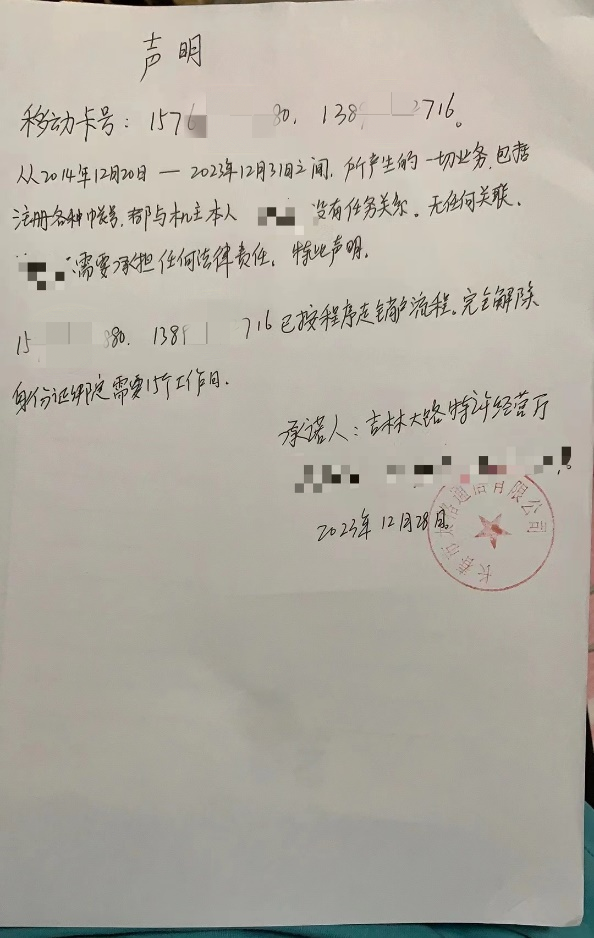 声明
移动卡号：1576 80、138 2716。
从2014年12月20日 — 2023年12月31日之间，所产生的一切业务，包括
注册各种帐号，都与机主本人 没有任务关系。无任何关联。
需要承担任何法律责任。特此声明。
15 80、138 716 已按程序走销户流程。完全解除
身份证绑定需要15个工作日。
承诺人：吉林大路特许经营厅
2023年12月28日
长春市 通信有限公司